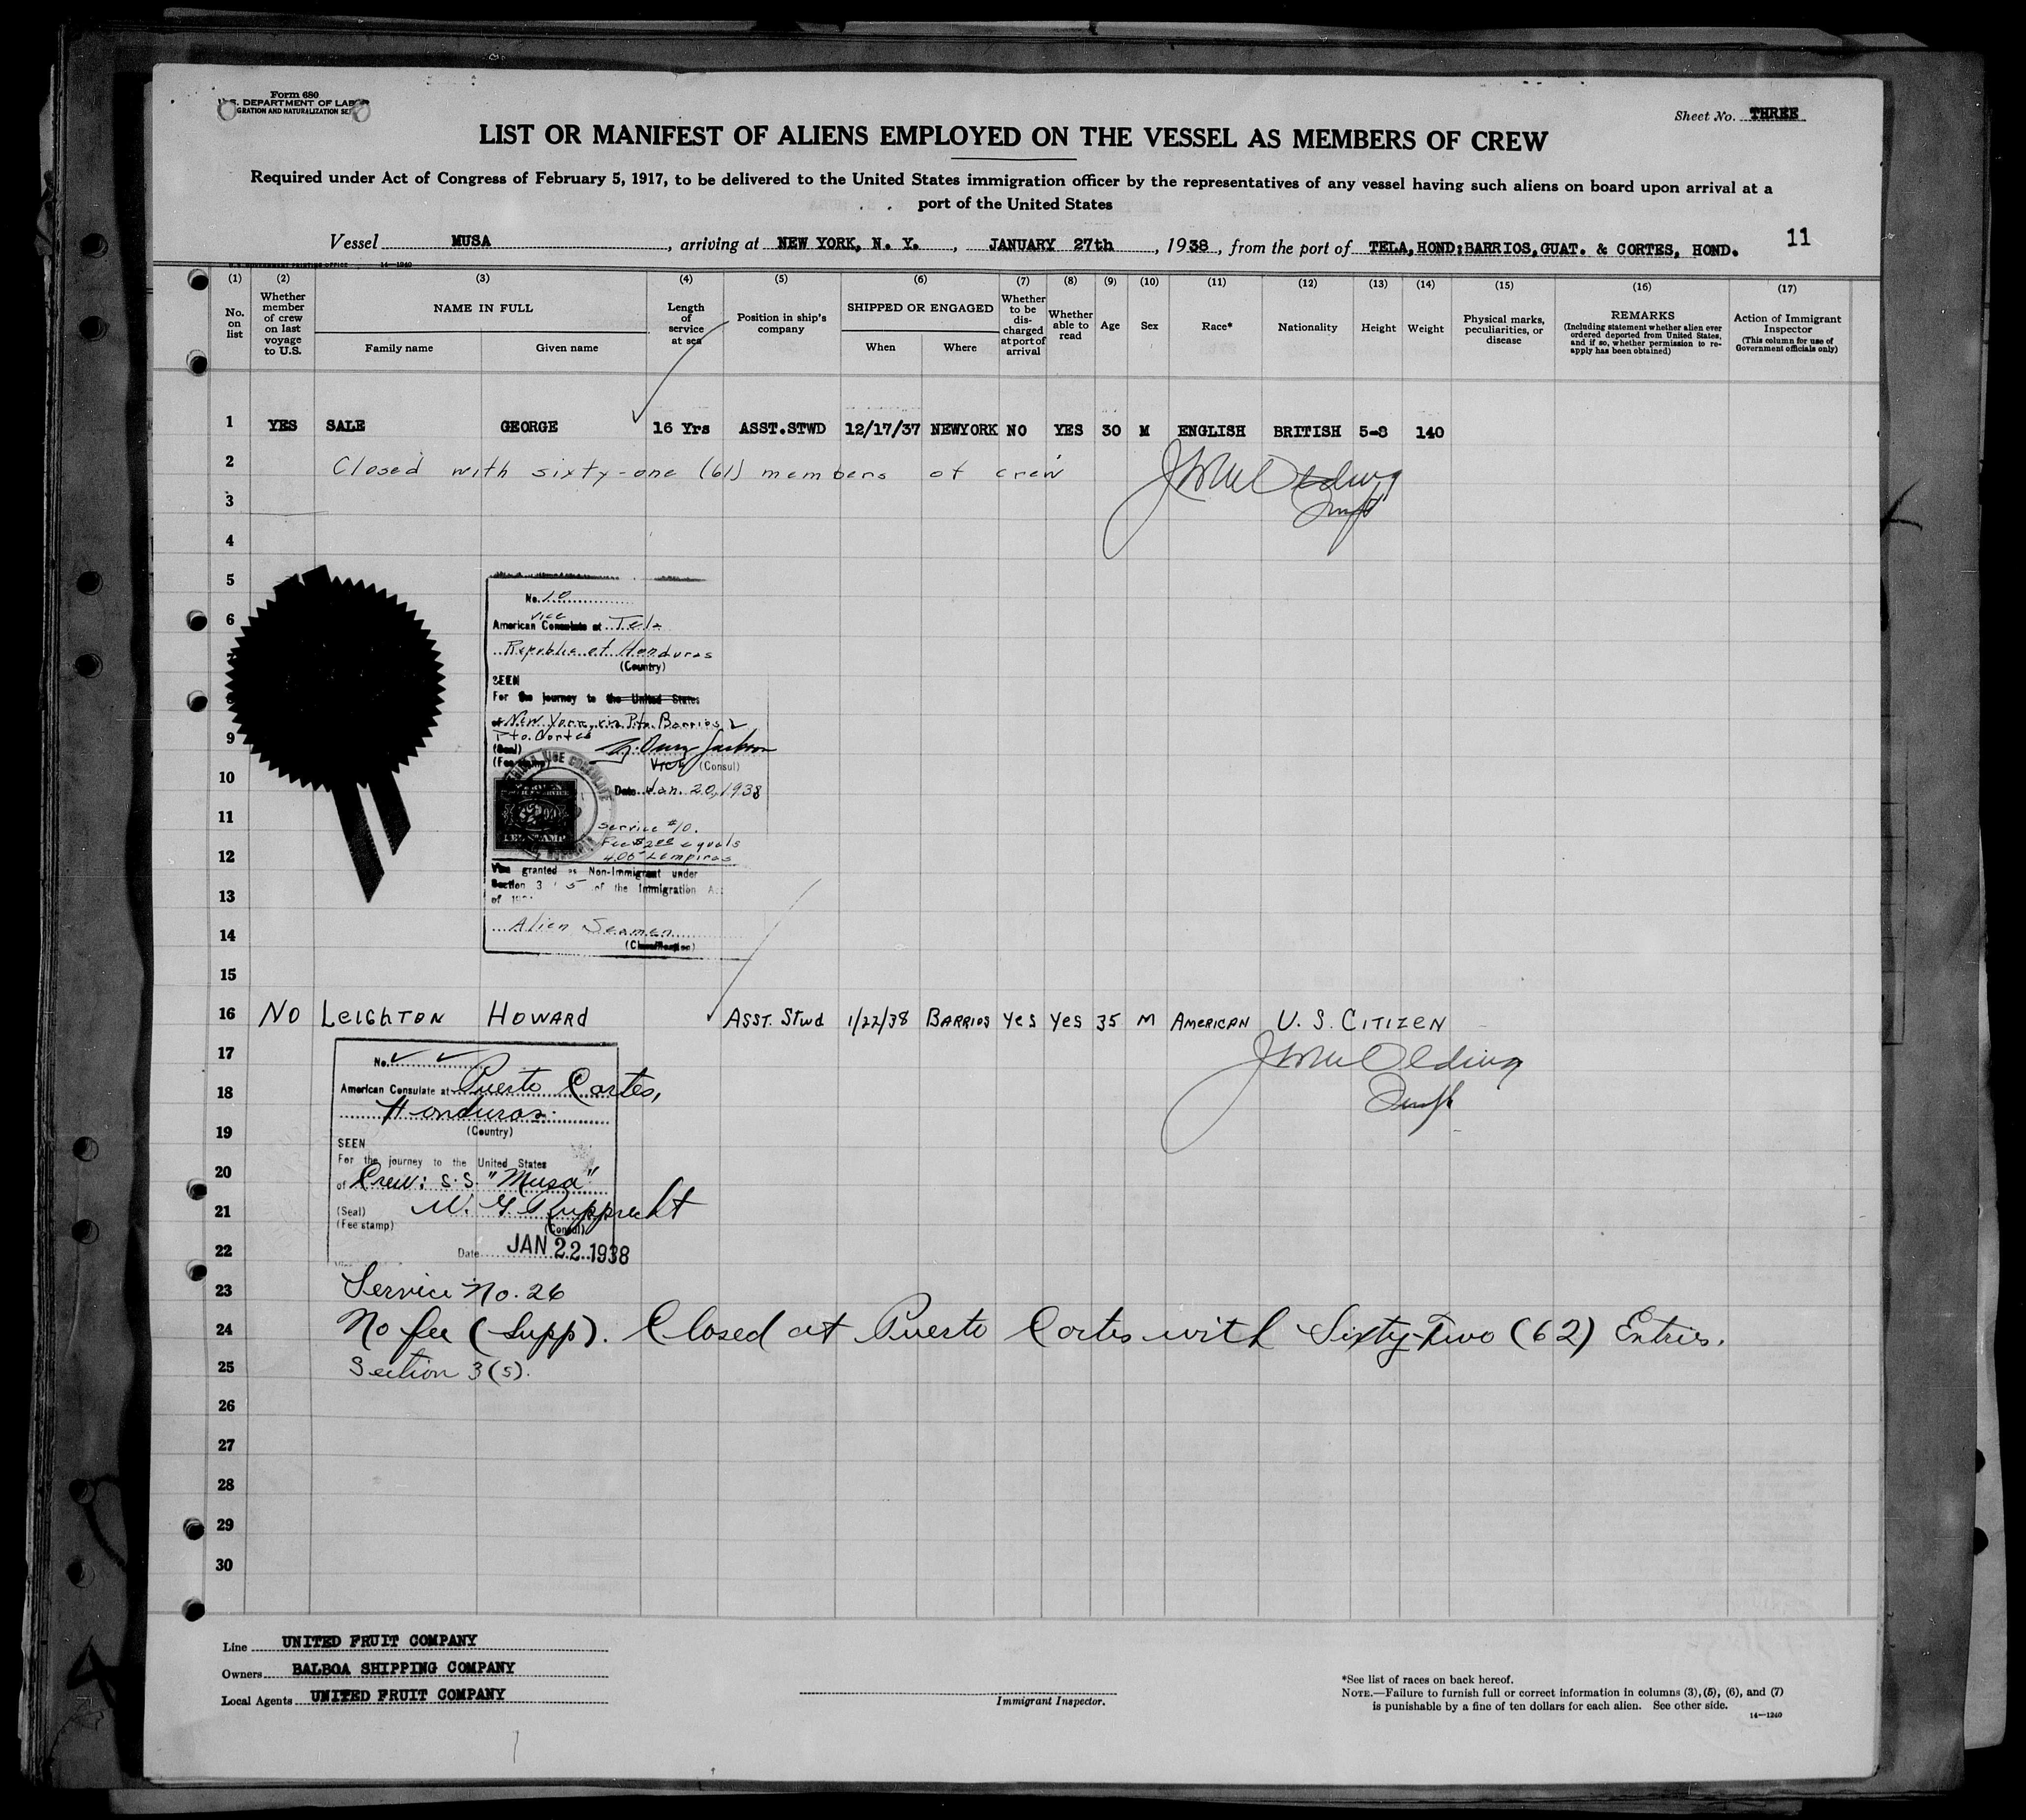 Form 680
U.S. DEPARTMENT OF LABOR
GRATION AND NATURALIZATION SE
Sheet No. THREE
LIST OR MANIFEST OF ALIENS EMPLOYED ON THE VESSEL AS MEMBERS OF CREW
Required under Act of Congress of February 5, 1917, to be delivered to the United States immigration officer by the representatives of any vessel having such aliens on board upon arrival at a
port of the United States
Vessel MUSA, arriving at NEW YORK, N. Y., JANUARY 27th, 1938, from the port of TELA,HOND;BARRIOS,GUAT. & CORTES, HOND.
11
U. S. GOVERNMENT PRINTING OFFICE 14—1240
(1) (2) (3) (4) (5) (6) (7) (8) (9) (10) (11) (12) (13) (14) (15) (16) (17)
No. on list
Whether member of crew on last voyage to U.S.
NAME IN FULL
Family name
Given name
Length of service at sea
Position in ship's company
SHIPPED OR ENGAGED
When
Where
Whether to be discharged at port of arrival
Whether able to read
Age
Sex
Race*
Nationality
Height
Weight
Physical marks, peculiarities, or disease
REMARKS
(Including statement whether alien ever ordered deported from United States, and if so, whether permission to reapply has been obtained)
Action of Immigrant Inspector
(This column for use of Government officials only)
1 YES SALE GEORGE 16 Yrs ASST.STWD 12/17/37 NEWYORK NO YES 30 M ENGLISH BRITISH 5-8 140
2 Closed with sixty-one (61) members of crew
3
4
5
No. 10
6
Vice
American Consulate at Tela
Republic of Honduras
(Country)
SEEN
For the journey to the United States
of New York via Pto. Barrios &
Pto. Cortes
9
(Seal)
(Fee stamp)
Vice (Consul)
10
Date Jan. 20, 1938
11
Service #10.
Fee $2.00 equals
12
4.00 Lempiras
Visa granted as Non-Immigrant under
13
Section 3 5 of the Immigration Act
of
Alien Seamen
14
(Classification)
15
16 NO LEIGHTON HOWARD ASST. STWD 1/22/38 BARRIOS YES YES 35 M AMERICAN U. S. CITIZEN
17
No.
18
American Consulate at Puerto Cortes,
Honduras.
19
(Country)
SEEN
For the journey to the United States
20
of Crew: S.S. "Musa"
21
(Seal) W. G. Rupprecht
(Fee stamp) (Consul)
22
Date JAN 22 1938
23 Service No. 26
24 No fee (Supp). Closed at Puerto Cortes with Sixty-Two (62) Entries.
25 Section 3(5).
26
27
28
29
30
Line UNITED FRUIT COMPANY
Owners BALBOA SHIPPING COMPANY
Local Agents UNITED FRUIT COMPANY
Immigrant Inspector.
*See list of races on back hereof.
NOTE.—Failure to furnish full or correct information in columns (3), (5), (6), and (7)
is punishable by a fine of ten dollars for each alien. See other side.
14—1240